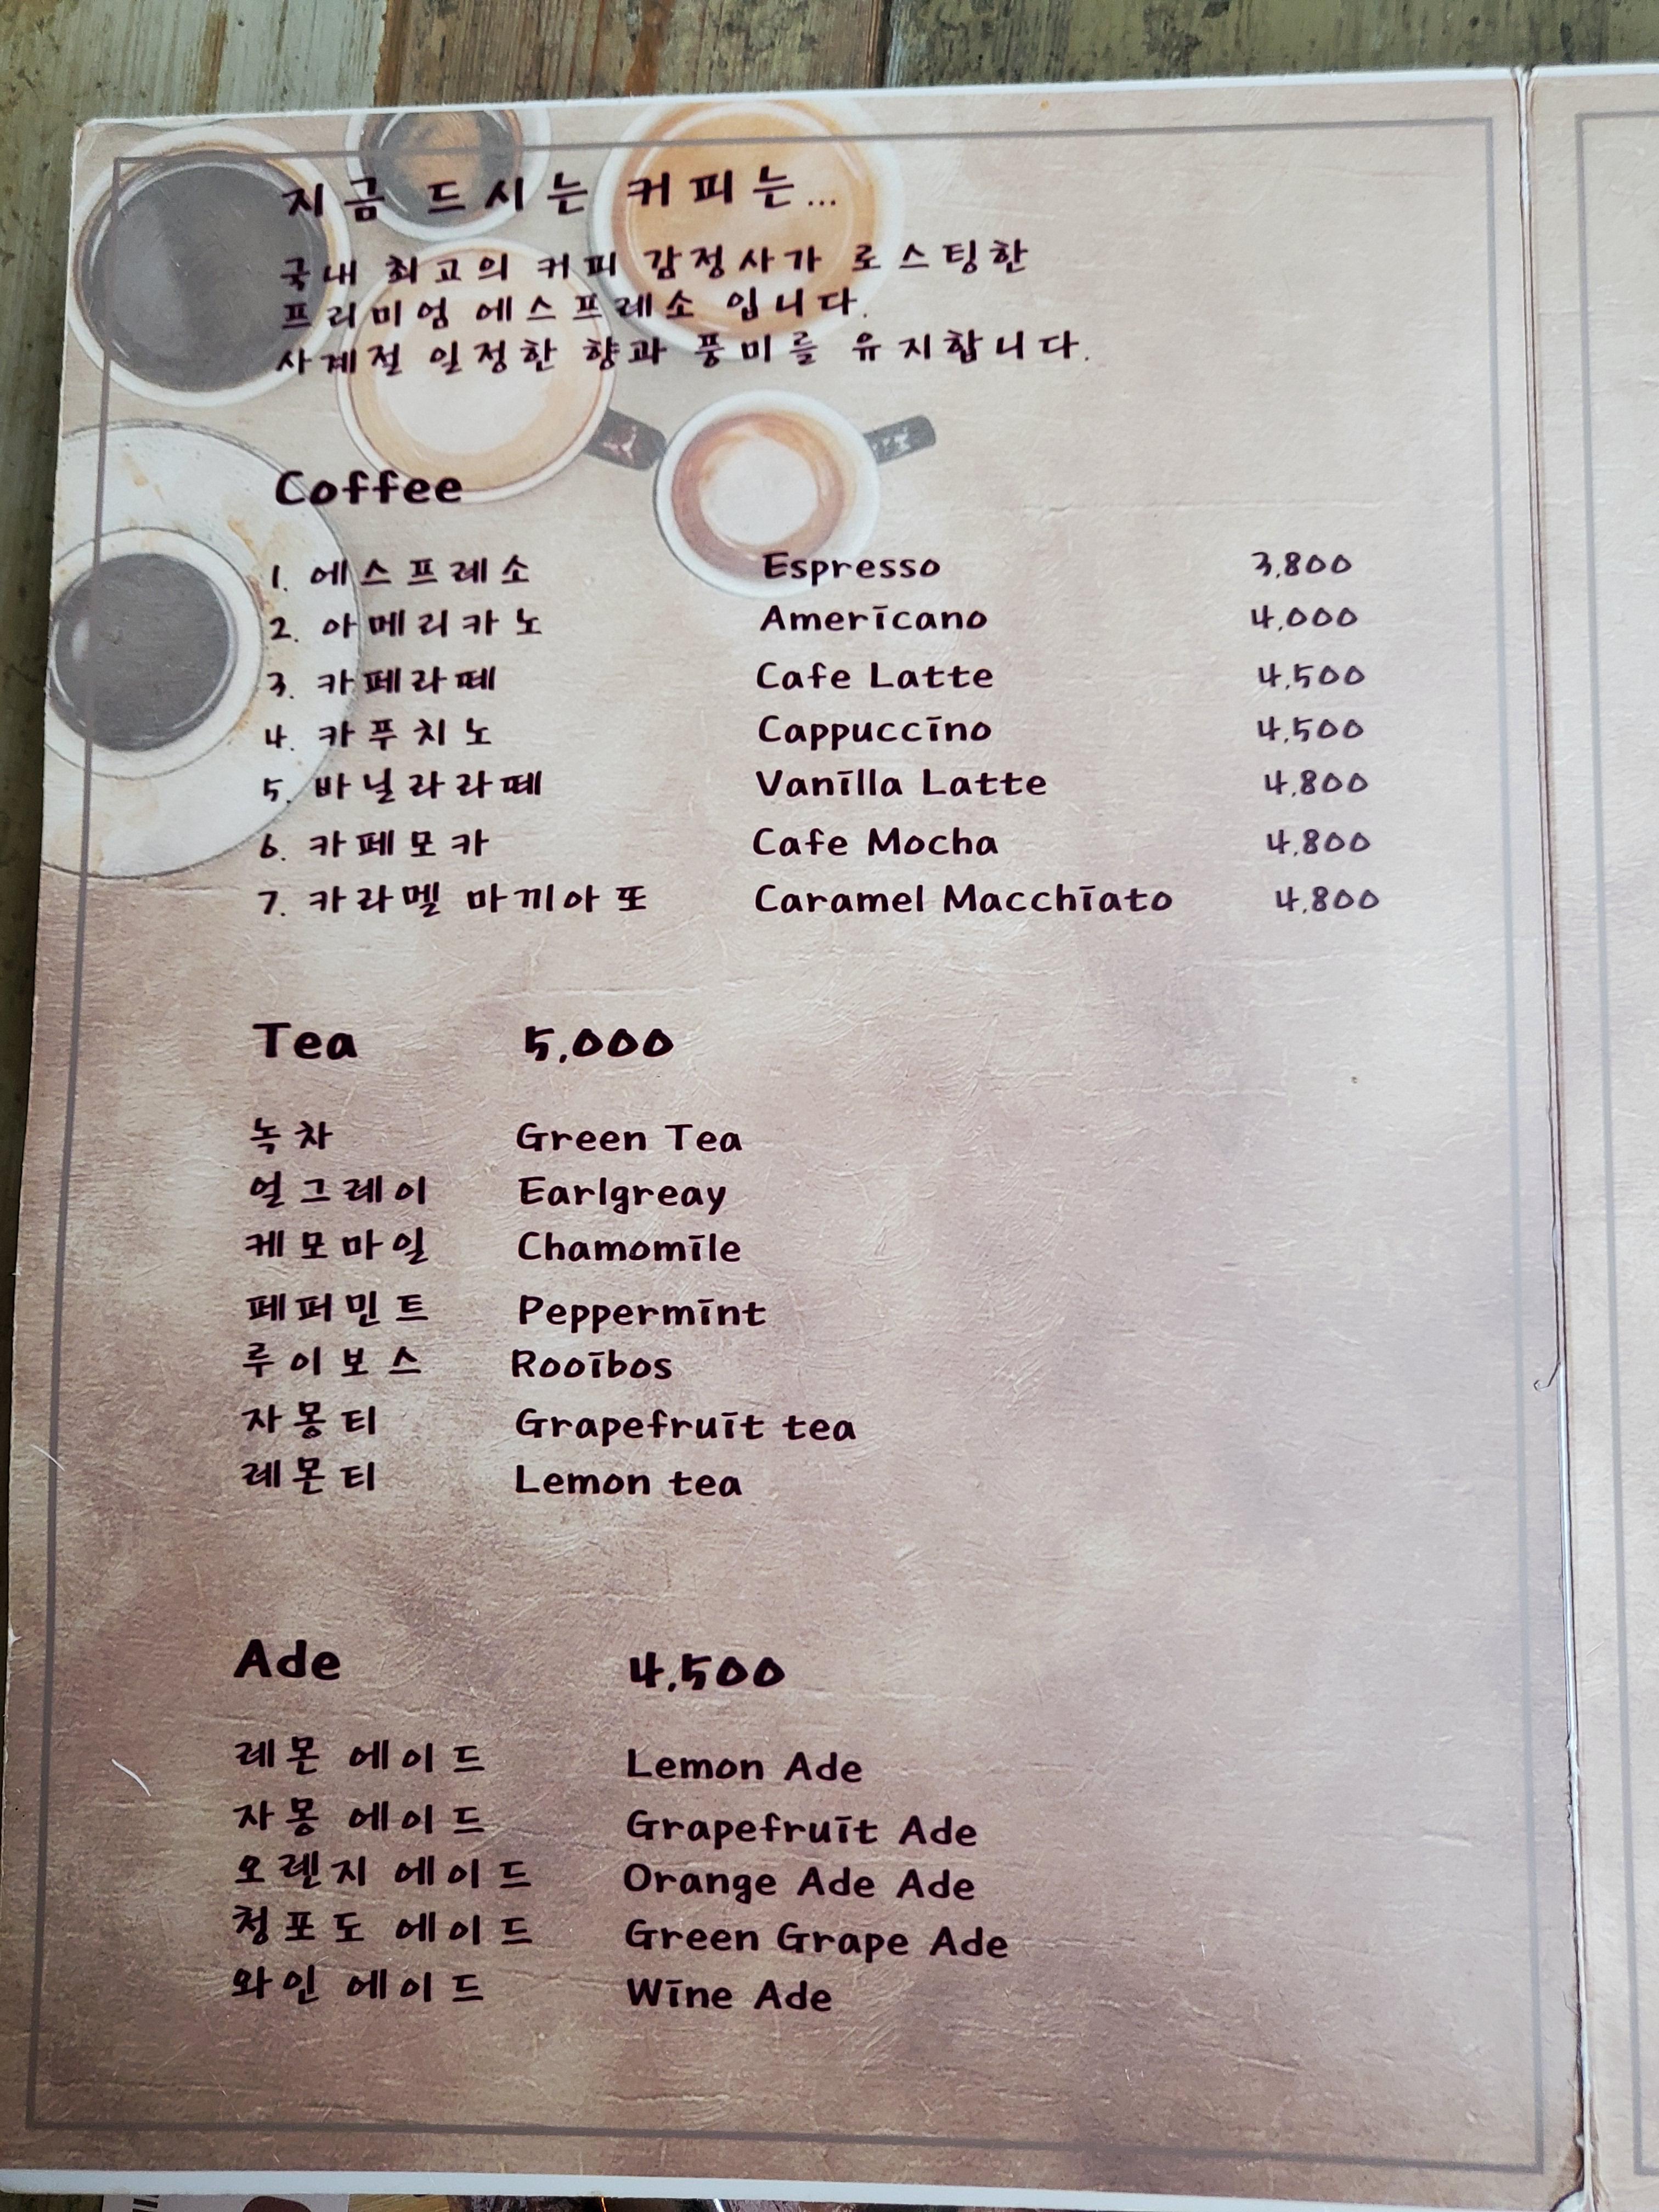 지금 드시는 커피는...
국내 최고의 커피 감정사가 로스팅한
프리미엄 에스프레소 입니다.
사계절 일정한 향과 풍미를 유지합니다.
Coffee
1. 에스프레소 Espresso 3,800
2. 아메리카노 Americano 4,000
3. 카페라떼 Cafe Latte 4,500
4. 카푸치노 Cappuccino 4,500
5. 바닐라라떼 Vanilla Latte 4,800
6. 카페모카 Cafe Mocha 4,800
7. 카라멜 마끼아또 Caramel Macchiato 4,800
Tea 5,000
녹차 Green Tea
얼그레이 Earlgreay
케모마일 Chamomile
페퍼민트 Peppermint
루이보스 Rooibos
자몽티 Grapefruit tea
레몬티 Lemon tea
Ade 4,500
레몬 에이드 Lemon Ade
자몽 에이드 Grapefruit Ade
오렌지 에이드 Orange Ade Ade
청포도 에이드 Green Grape Ade
와인 에이드 Wine Ade